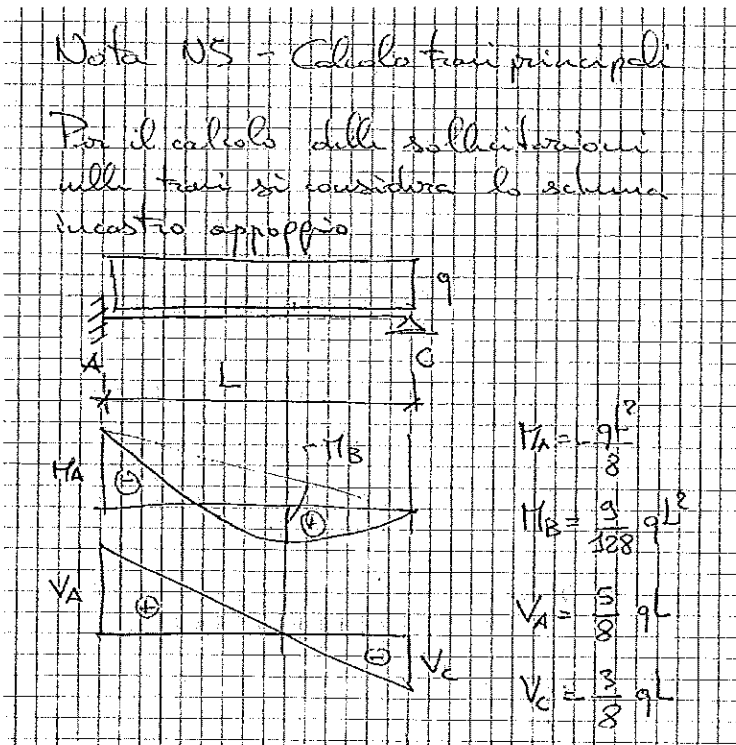 Nota N5 - Calcolo travi principali
Per il calcolo delle sollecitazioni
nelle travi si considera lo schema
incastro appoggio
q
A
C
L
M_A
⊖
M_B
⊕
V_A
⊕
⊖
V_C
M_A = - qL²/8
M_B = 9/128 qL²
V_A = 5/8 qL
V_C = - 3/8 qL